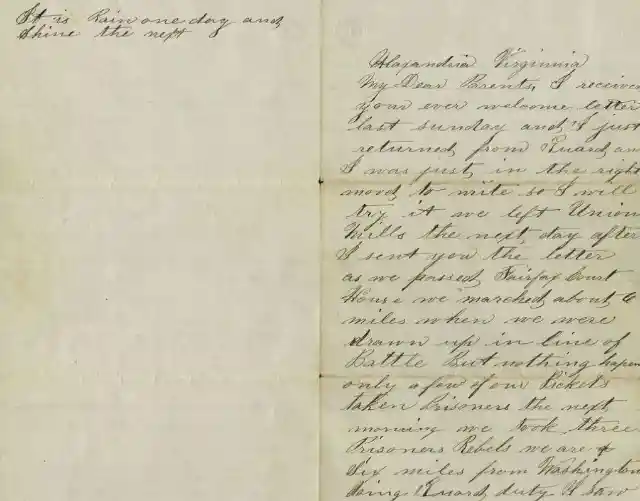 It is Rain one day and
Shine the next
Alaxandria Virginnia
My Dear Parents, I receive
your ever welcome letter
last sunday and I just
returned from Guard an
I was just in the right
mood to write so I will
try it we left Union
Mills the next day after
I sent you the letter
as we passed Fairfax Court
House we marched about 6
miles when we were
drawn up in line of
Battle But nothing hapen
only a few of our Pickets
taken Prisoners the next
morning we took three
Prisoners Rebels we are
six miles from Washington
doing Guard duty I saw